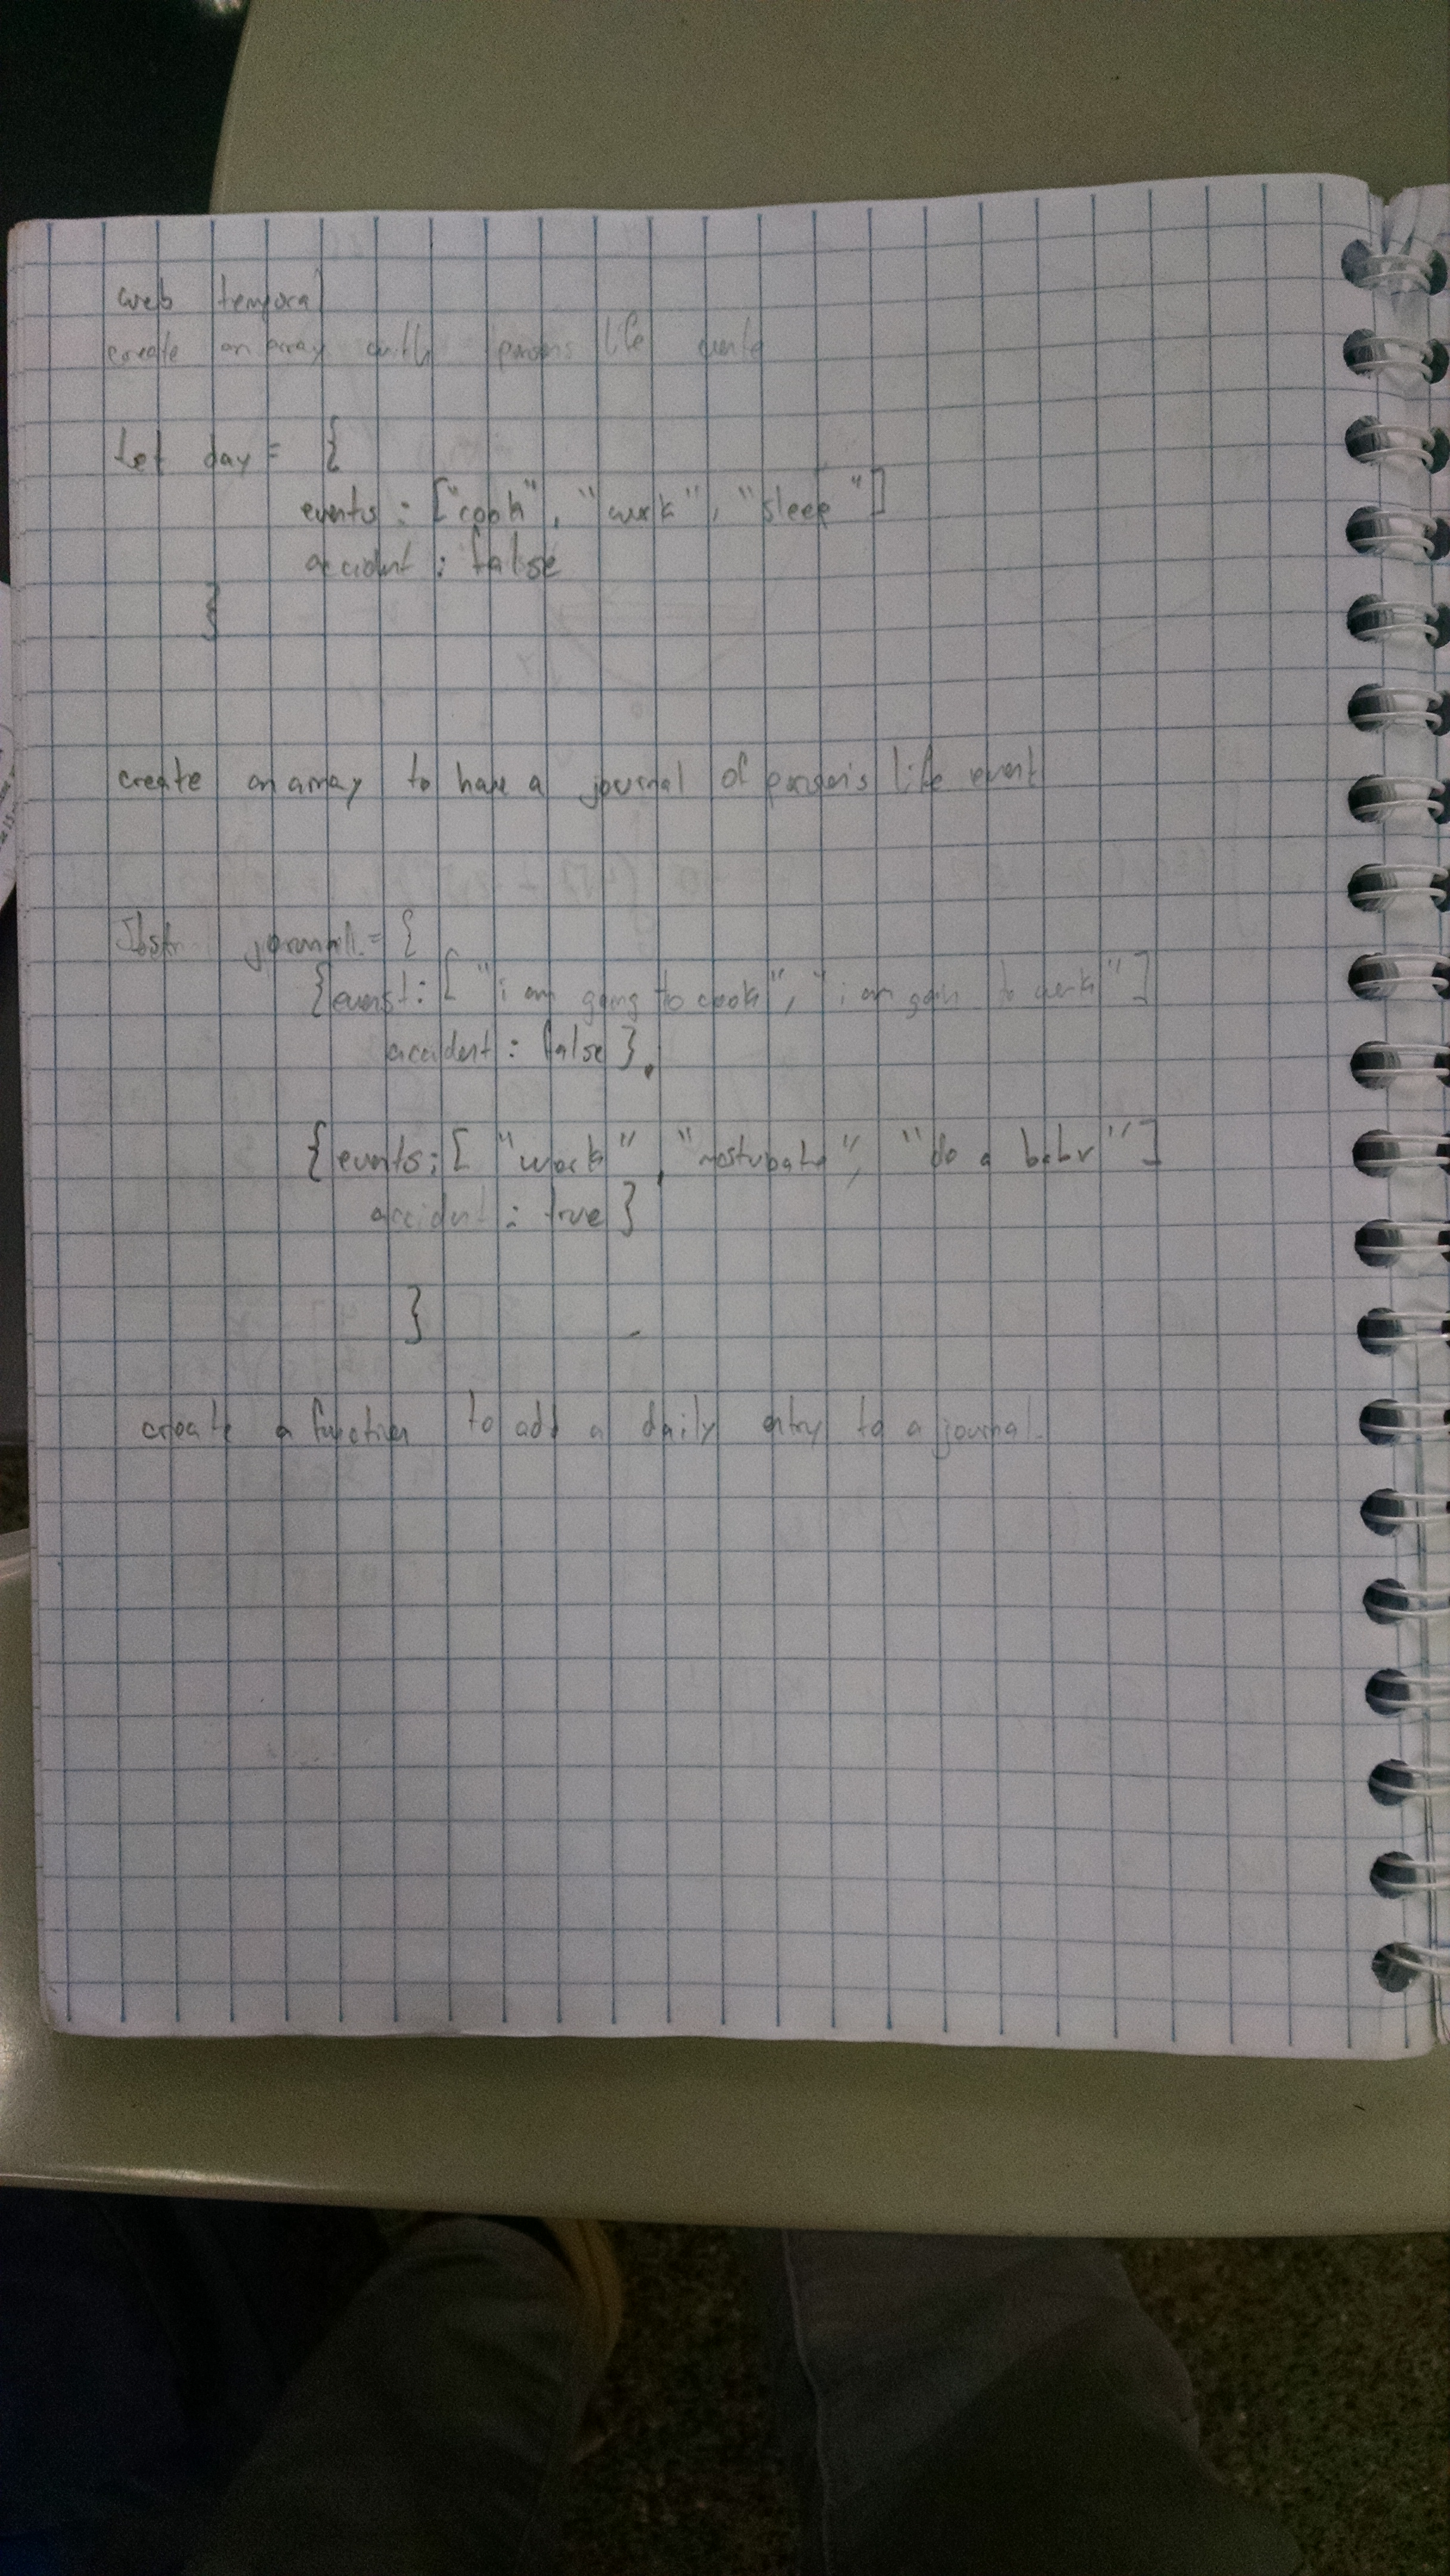 web temporal
create an array with persons life
let day = {
events : ["cook", "work", "sleep"]
accident : false
}
create an array to have a journal of person's life event
journal = {
{event: [ "i am going to cook", "i am goin to work" ]
accident : false },
{ events: [ "work", "mastubate", "do a" ]
accident : true }
}
create a function to add a daily entry to a journal.